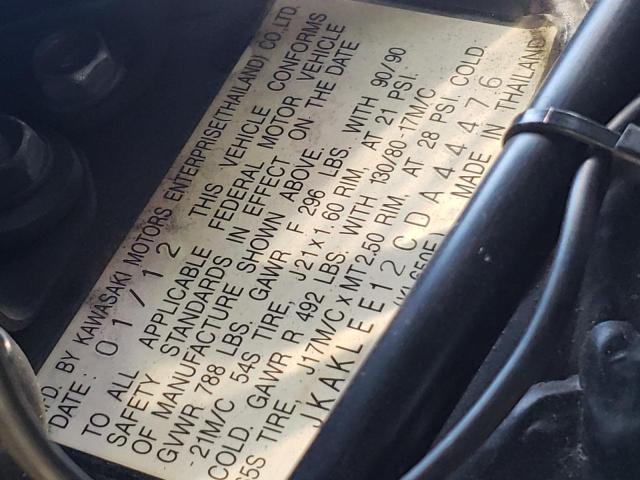 MFD. BY KAWASAKI MOTORS ENTERPRISE(THAILAND) CO.,LTD.
DATE: 01/12 THIS VEHICLE CONFORMS
TO ALL APPLICABLE FEDERAL MOTOR VEHICLE
SAFETY STANDARDS IN EFFECT ON THE DATE
OF MANUFACTURE SHOWN ABOVE.
GVWR 788 LBS. GAWR F 296 LBS. WITH 90/90
-21M/C 54S TIRE, J21×1.60 RIM. AT 21 PSI.
COLD. GAWR R 492 LBS. WITH 130/80-17M/C
65S TIRE, J17M/C×MT2.50 RIM. AT 28 PSI. COLD.
JKAKLEE12CDA44476
KL650E MADE IN THAILAND